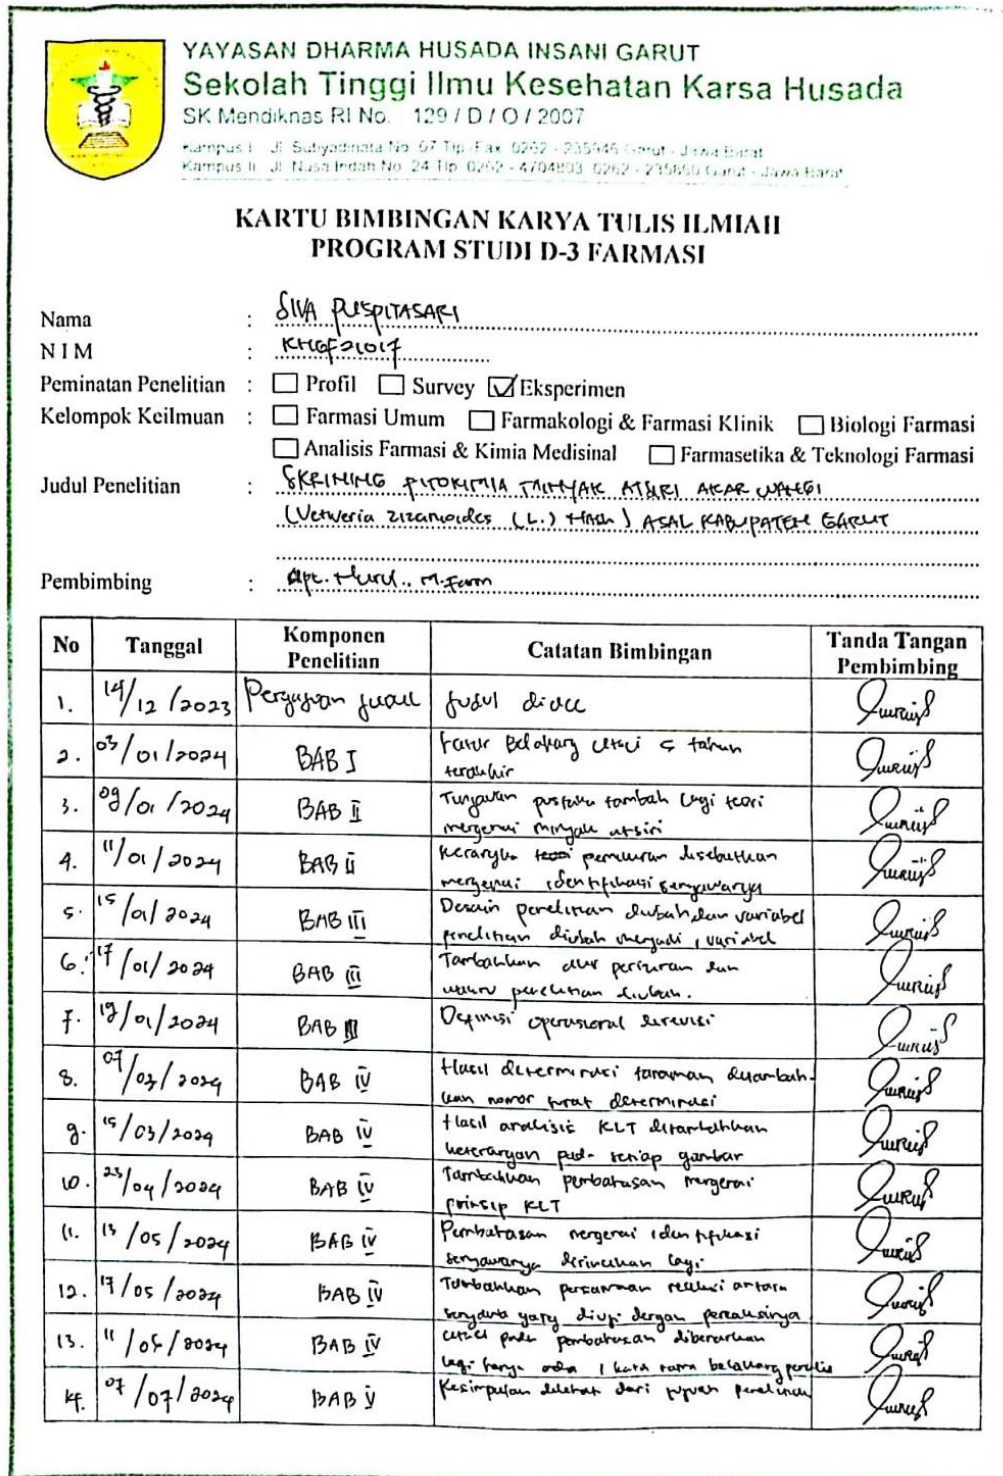 YAYASAN DHARMA HUSADA INSANI GARUT
Sekolah Tinggi Ilmu Kesehatan Karsa Husada
SK Mendiknas RI No. 129 / D / O / 2007
Kampus I Jl. Subyadinata No. 07 Tlp./Fax. 0262 - 235946 Garut - Jawa Barat
Kampus II Jl. Nusa Indah No. 24 Tlp. 0262 - 4704803 0262 - 235860 Garut - Jawa Barat
KARTU BIMBINGAN KARYA TULIS ILMIAH
PROGRAM STUDI D-3 FARMASI
Nama : SIVA PUSPITASARI
NIM : KHGF21017
Peminatan Penelitian : Profil Survey Eksperimen
Kelompok Keilmuan : Farmasi Umum Farmakologi & Farmasi Klinik Biologi Farmasi
Analisis Farmasi & Kimia Medisinal Farmasetika & Teknologi Farmasi
Judul Penelitian : SKRINING FITOKIMIA MINYAK ATSIRI AKAR WANGI
(Vetiveria zizanoides (L.) Nash) ASAL KABUPATEN GARUT
Pembimbing : Apt. Nurul., M.Farm
No Tanggal Komponen Penelitian Catatan Bimbingan Tanda Tangan Pembimbing
1. 14/12/2023 Pengajuan judul Judul diacc
2. 03/01/2024 BAB I Latar Belakang 5 tahun
terakhir
3. 09/01/2024 BAB II Tinjauan pustaka tambah lagi teori
mengenai minyak atsiri
4. 11/01/2024 BAB II Kerangka pemikiran disebutkan
mengenai identifikasi senyawanya
5. 15/01/2024 BAB III Desain penelitian diubah dan variabel
penelitian diubah menjadi 1 variabel
6. 17/01/2024 BAB III Tambahkan alur perizinan dan
waktu penelitian diubah.
7. 19/01/2024 BAB III Definisi operasional direvisi
8. 07/03/2024 BAB IV Hasil determinasi tanaman ditambah-
kan nomor surat determinasi
9. 15/03/2024 BAB IV Hasil analisis KLT ditambahkan
keterangan pada setiap gambar
10. 23/04/2024 BAB IV Tambahkan pembahasan mengenai
prinsip KLT
11. 13/05/2024 BAB IV Pembahasan mengenai identifikasi
senyawanya dirincikan lagi
12. 17/05/2024 BAB IV Tambahkan persamaan reaksi antara
senyawa yang diuji dengan pereaksinya
13. BAB IV pada pembahasan dibenarkan
lagi hanya ada 1 kata nama belakang penulis
14. 07/07/2024 BAB V Kesimpulan dilihat dari tujuan penelitian